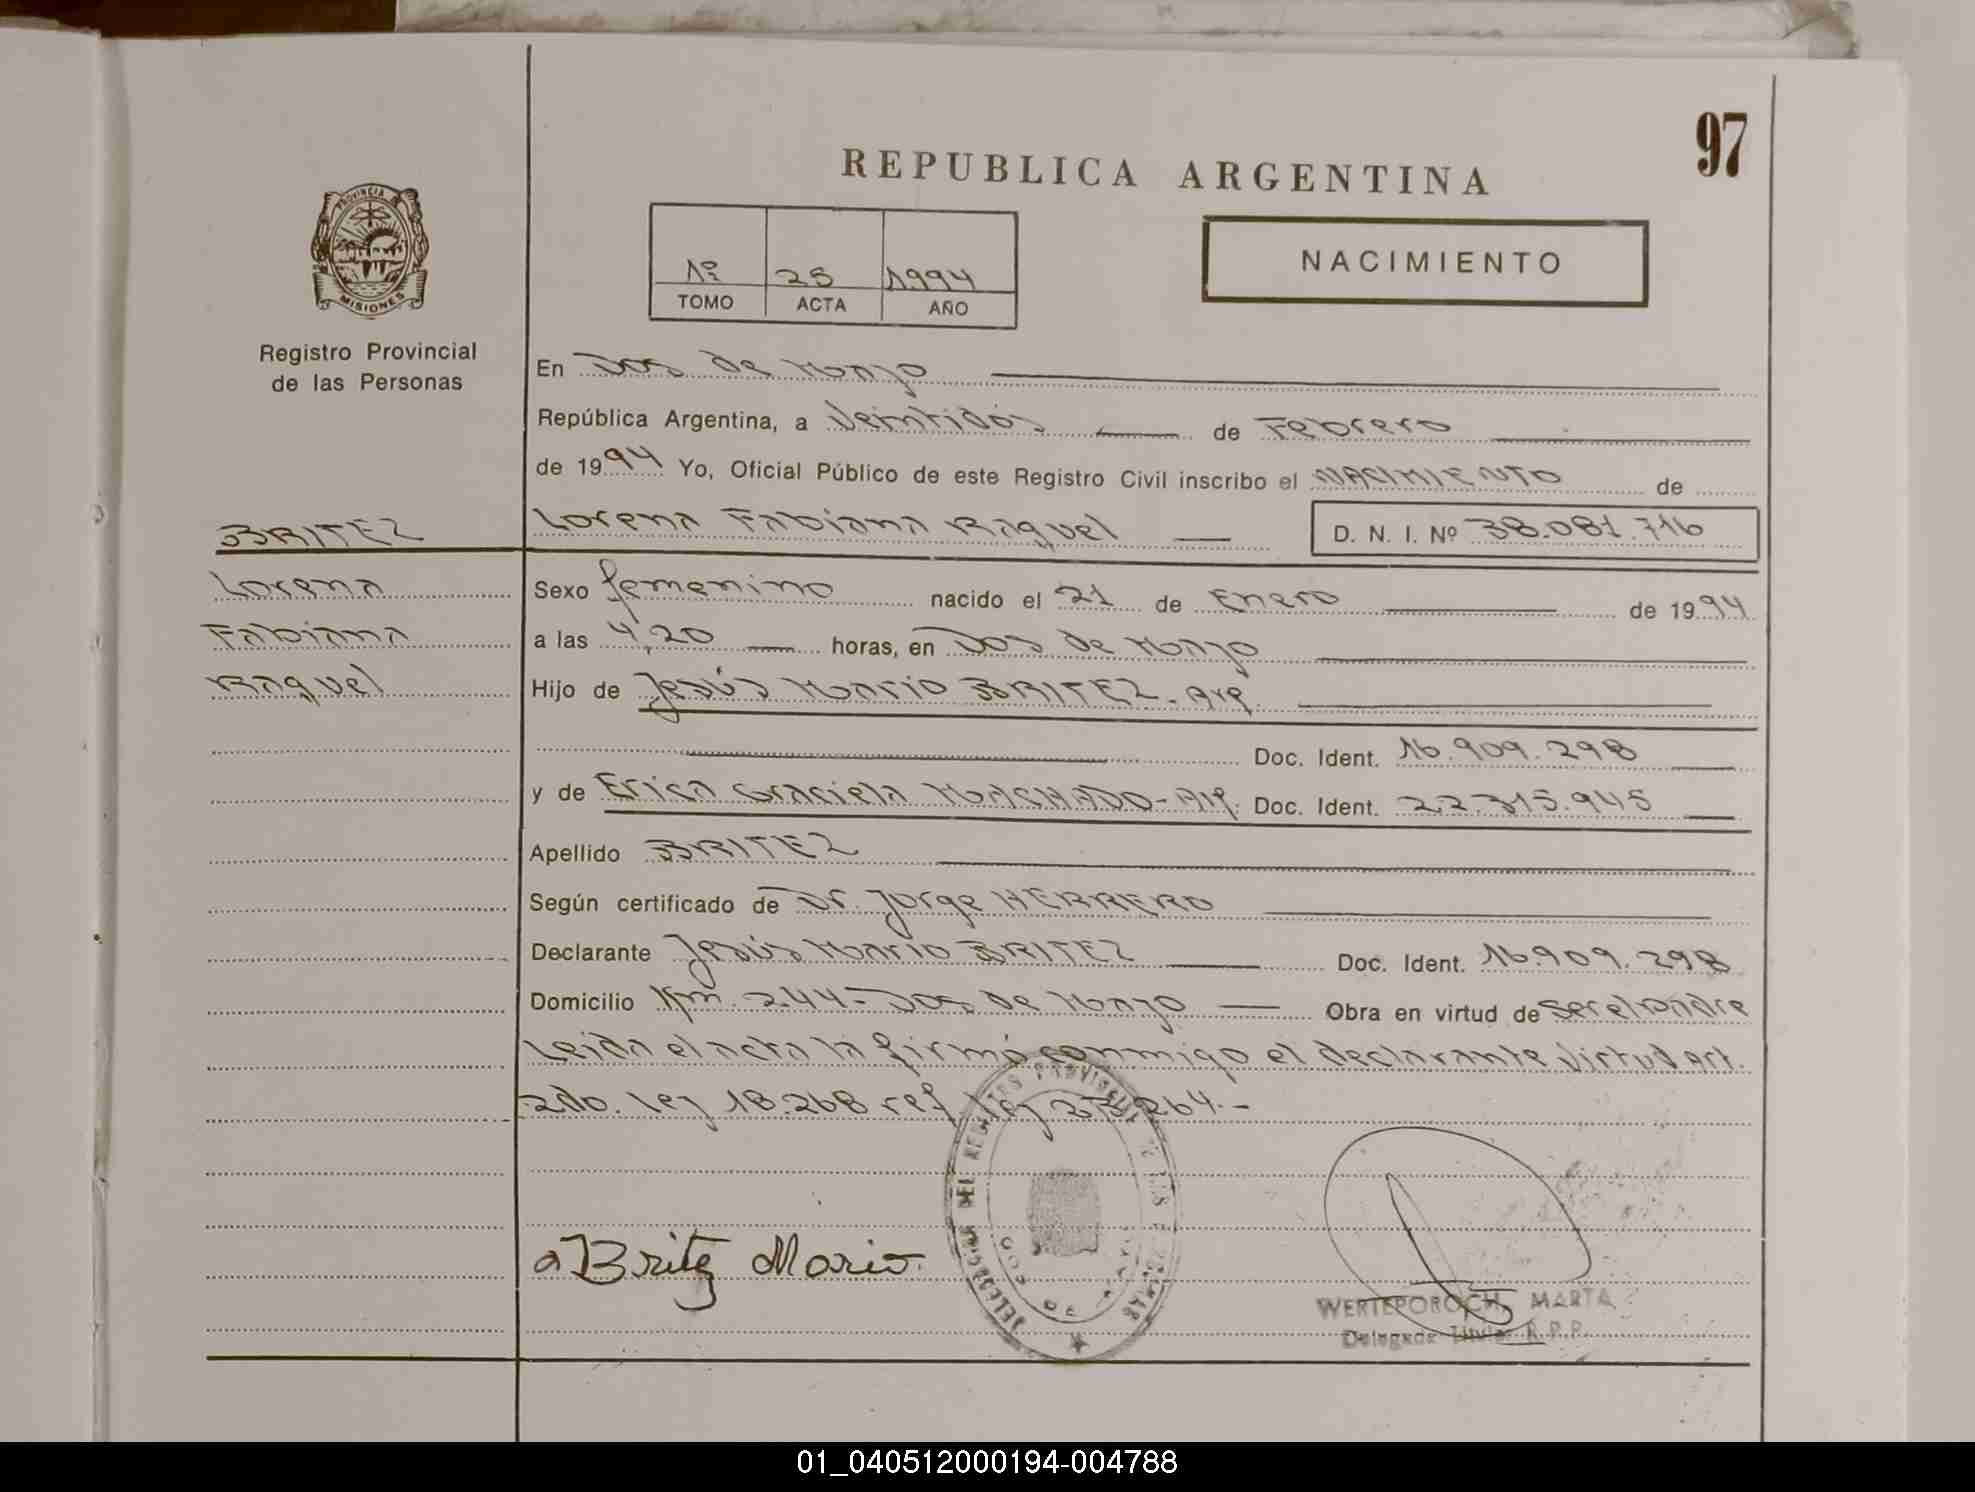 97
REPUBLICA ARGENTINA
PROVINCIA
MISIONES
Registro Provincial
de las Personas
1º 25 1994
TOMO ACTA AÑO
NACIMIENTO
En Dos de Mayo
República Argentina, a Veintidós de Febrero
de 1994 Yo, Oficial Público de este Registro Civil inscribo el NACIMIENTO de
BRITEZ
Lorena Fabiana Raquel D. N. I. Nº 38.081.716
Lorena
Fabiana
Raquel
Sexo femenino nacido el 21 de Enero de 1994
a las 4,20 horas, en Dos de Mayo
Hijo de Jesús Mario BRITEZ - Arg.
Doc. Ident. 16.909.298
y de Erica Graciela MACHADO - Arg. Doc. Ident. 22.315.945
Apellido BRITEZ
Según certificado de Dr. Jorge HERRERO
Declarante Jesús Mario BRITEZ Doc. Ident. 16.909.298
Domicilio Km. 244 - Dos de Mayo Obra en virtud de ser el padre
Leida el acta la firmó conmigo el declarante Virtud Art.
2do. Ley 18.268 ref Ley 23.264.-
Britez Mario
WERTEPOROCH, MARTA
Delegada Titular R.P.P.
01_040512000194-004788